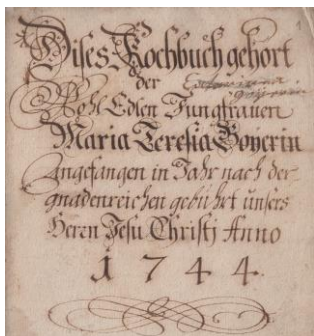 Dises Kochbuch gehört
der
Wohl Edlen Jungfrauen
Maria Teresia Boyerin
Angefangen in Jahr nach der
gnadenreichen gebuhrt unsers
Heren Jesu Christj Anno
1744.